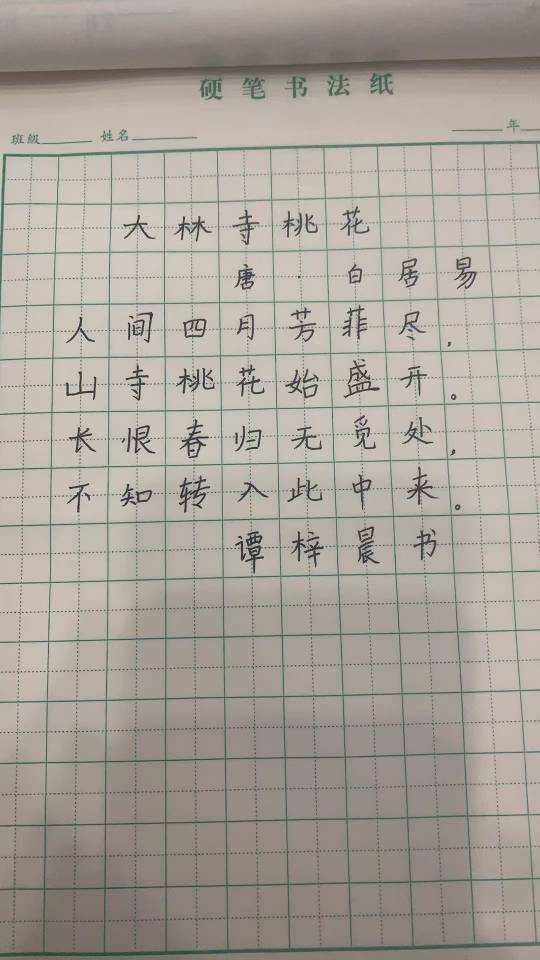 硬笔书法纸
班级 姓名 年
大林寺桃花
唐·白居易
人间四月芳菲尽，
山寺桃花始盛开。
长恨春归无觅处，
不知转入此中来。
谭梓晨书